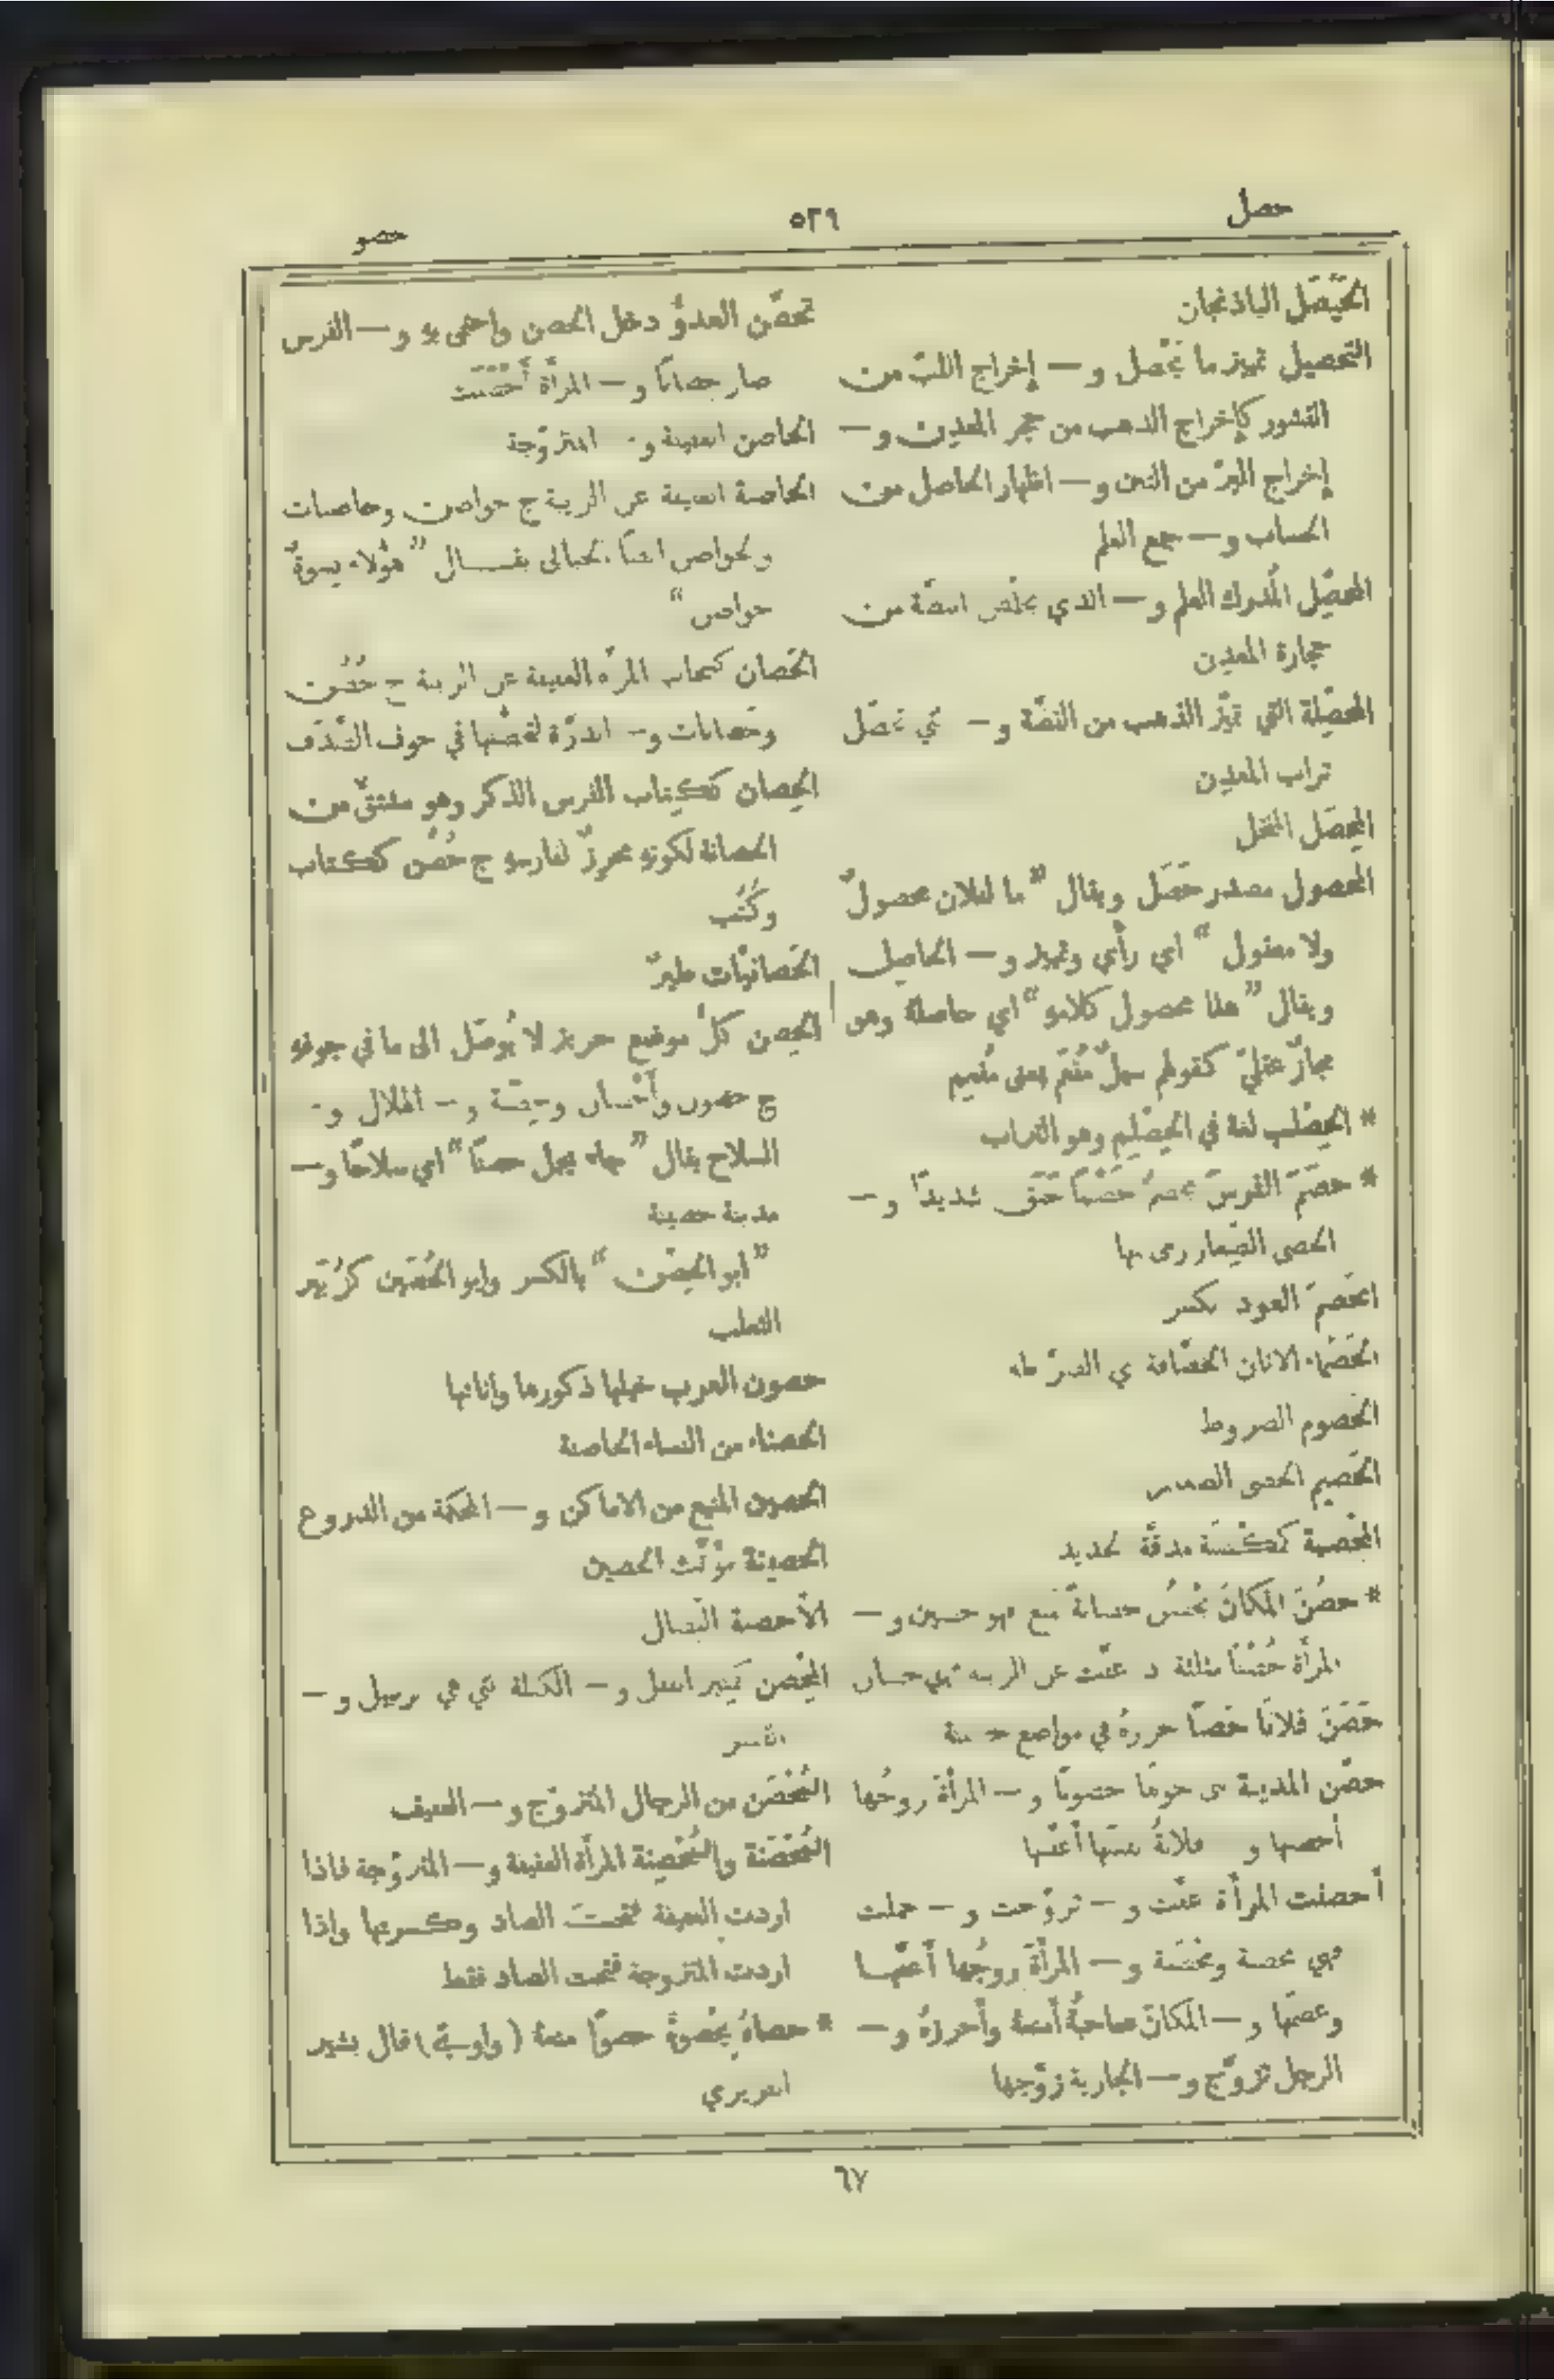 حصل
٥٢٩
حصو
الحَيْصَل الباذنجان
التحصيل تمييز ما يَحْصل و— إخراج اللبّ من
القشور كإخراج الذهب من حجر المعدِن و—
إخراج البرّ من التبن و— اظهار الحاصل من
الحساب و— جمع العلم
المحصِّل المُدرك العلم و— الذي يخلّص الفضّة من
حجارة المعدِن
المحصِّلة التي تميّز الذهب من الفضّة و— تحصّل
تراب المعدِن
المِحصَل المنخل
المحصول مصدر حَصَل ويقال ”ما لفلان محصولٌ
ولا معقول“ اي رأي وتمييز و— الحاصل
ويقال ”هذا محصول كلامهِ“ اي حاصلهُ وهو
مجازٌ عقليّ كقولهم سيلٌ مُفْعَم بمعنى مُفعِم
* الحِصْلِب لغة في الحِصْلِم وهو التراب
* حصَمَ الفرسُ يحصم حَصْمًا حَبَق شديدًا و—
الحصى الصِغار رمى بها
انحصَمَ العود انكسر
الحَصْماء الاتان الخضّافة اي الضرّاطة
الحَصوم الضروط
الحَصيم الحصى الصغير
المِحْصَمة كمِكْنَسة مدقّة الحديد
* حصُنَ المكانُ يَحْصُن حصانةً منع فهو حصين و—
المرأة حُصْنًا مثلثة عفّت عن الريبة فهي حصان
حَصَنَ فلانًا حَصنًا حرزهُ في مواضع حصينة
حصّن المدينة بنى حولها حصونًا و— المرأةَ زوجُها
أحصنها و فلانةُ نفسَها أعفّتها
أحصنت المرأة عفّت و— تزوّجت و— حملت
فهي محصِنة ومحصَنة و— المرأةَ زوجُها أعفّهـا
وعصمها و— المكانَ صاحبهُ أمنعهُ وأحرزهُ و—
الرجل تزوّج و— الجارية زوّجها
تحصّن العدوُّ دخل الحصن واحتمى بهِ و— الفرس
صار حِصانًا و— المرأة أَحْصَنَت
الحاصن العفيفة و— المتزوّجة
الحاصنة العفيفة عن الريبة ج حواصن وحاصنات
والحواصن ايضًا الحبالى يقـــال ”هؤلاء نسوةٌ
حواصن“
الحَصان كسحاب المرأة العفيفة عن الريبة ج حُصُن
وحَصانات و— الدرّة لتحصّنها في جوف الصَّدَف
الحِصان ككِتاب الفرس الذكر وهو مشتقّ من
الحصانة لكونهِ محرِزٌ لفارسهِ ج حُصُن ككتاب
وكُتُب
الحَصانيّات طيرٌ
الحِصن كلُّ موضعٍ حريز لا يُوصَل الى ما في جوفهِ
ج حصون وأَحْصان وحِصَنة و— الهلال و—
السلاح يقال ”جاء يحمل حصنًا“ اي سلاحًا و—
مدينة حصينة
”ابو الحِصْن“ بالكسر وابو الحُصَين كزُبَير
الثعلب
حصون العرب خيلها ذكورها واناثها
الحصناء من النساء الحاصنة
الحصين المنيع من الاماكن و— المحكمة من الدروع
الحصينة مؤنّث الحصين
الأَحصنة النِصال
المِحْصن كمِنبر القفل و— المِكتلة التي هي زبيل و—
القصر
المُحْصَن من الرجال المتزوّج و— العفيف
المُحْصَنة والمُحْصِنة المرأة العفيفة و— المتزوّجة فاذا
اردت العفيفة فتحتَ الصاد وكسرتها واذا
اردت المتزوجة فتحت الصاد فقط
* حصاهُ يَحْصوهُ حصوًا منعهُ (واويّة) قال بشير
الفريري
٦٧